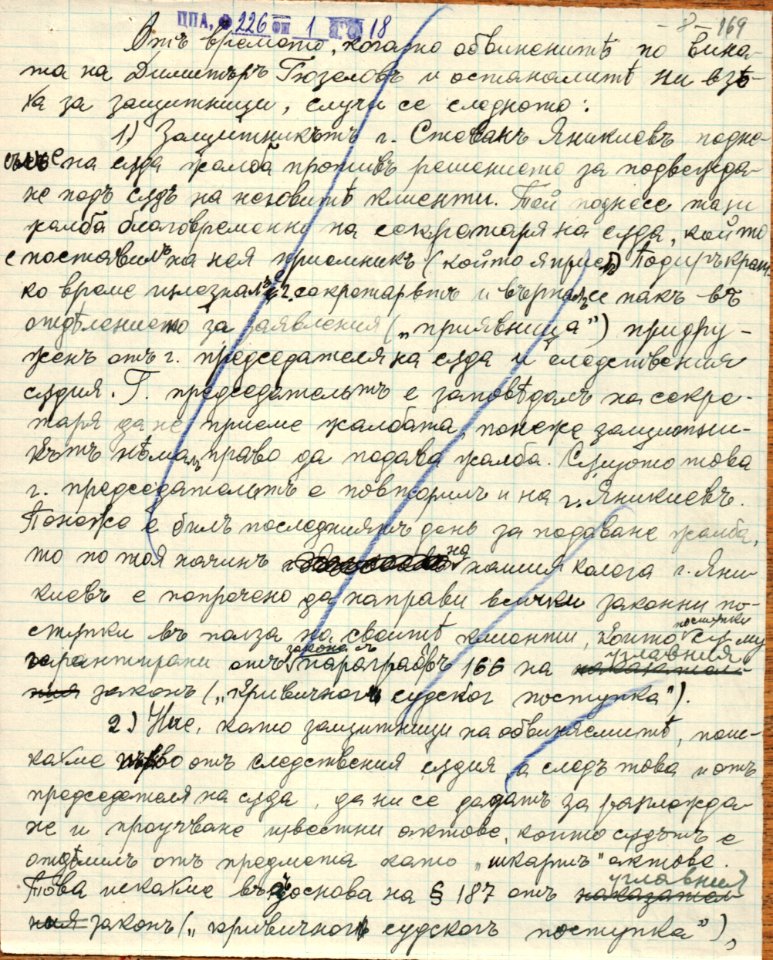 ППА, ф 226 оп 1 а.е. 18
— 8 — 169
Отъ времето, когато обвиненитѣ по вина-
та на Димитъръ Гюзеловъ и останалитѣ ни взѣ-
ха за защитници, случи се следното:
1) Защитникътъ г. Стеванъ Яникиевъ подне-
съле на сѫда жалба противъ решението за подвежда-
не подъ сѫдъ на неговитѣ клиенти. Той поднесе тази
жалба благовременно на секретаря на сѫда, който
е поставилъ на нея приемникъ (който я прие). Подиръ крат-
ко време излезналъ секретарьтъ и върналъ се пакъ въ
отдѣлението за заявления („приявница") придру-
женъ отъ г. председателя на сѫда и следствения
сѫдия. Г. председательтъ е заповѣдалъ на секре-
таря да не приеме жалбата, понеже защитни-
кътъ нѣмалъ право да подава жалба. Сѫщото това
г. председательтъ е повторилъ и на г. Яникиевъ.
Понеже е билъ последниятъ день за подаване жалба,
то по тоя начинъ на нашия колега г. Яни-
киевъ е попречено да направи всички законни по-
стѫпки въ полза на своитѣ клиенти, които постѫпки сѫ му
гарантирани отъ закона съ параграфъ 166 на углавния наказател-
ния законъ („Кривичног судског поступка").
2) Ние, като защитници на обвиняемитѣ, поис-
кахме първо отъ следствения сѫдия, а следъ това и отъ
председателя на сѫда, да ни се дадатъ за разглежда-
не и проучване известни актове, които сѫдътъ е
отдѣлилъ отъ предмета като „шкартъ" актове.
Това искахме въз основа на § 187 отъ углавния наказател-
ния законъ („кривичног судског поступка"),